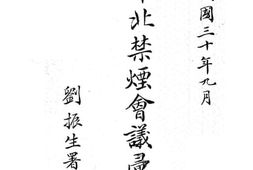 國三十年九月
北禁煙會議
劉振生署